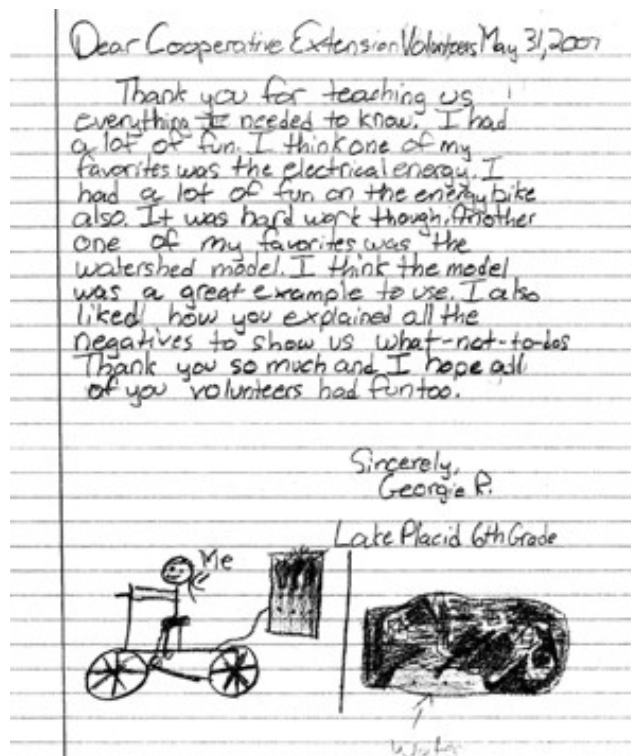 Dear Cooperative Extension Volunteers May 31, 2007
Thank you for teaching us
everything I needed to know. I had
a lot of fun. I think one of my
favorites was the electrical energy. I
had a lot of fun on the energy bike
also. It was hard work though. Another
one of my favorites was the
watershed model. I think the model
was a great example to use. I also
liked how you explained all the
negatives to show us what-not-to-dos
Thank you so much and I hope all
of you volunteers had fun too.
Sincerely,
Georgie R.
Lake Placid 6th Grade
Me
Water